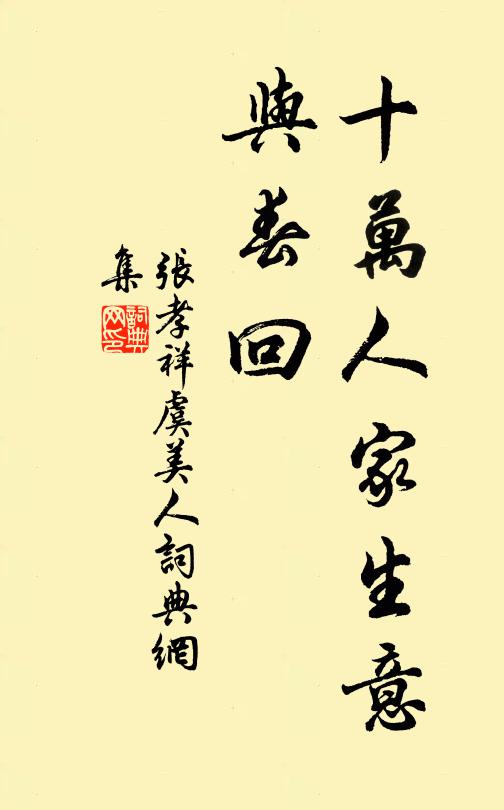 十萬人家生意
與春回
張孝祥虞美人詞典網
集
詞典网印